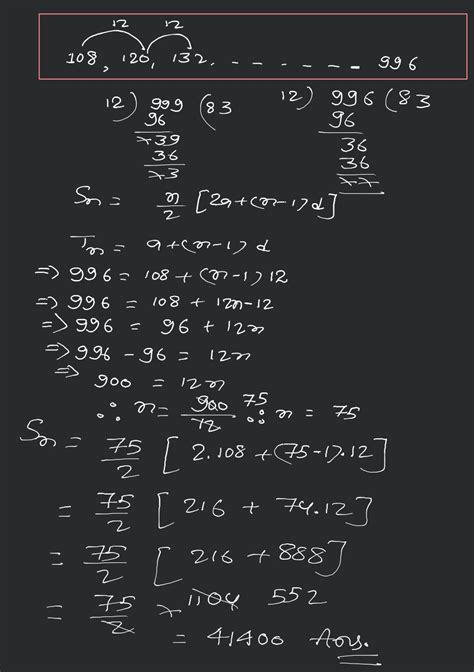 12 12
108, 120, 132. - - - - - - - 996
12) 999 (83 12) 996 (83
96 96
×39 36
36 36
×3 ××
Sn = n/2 [2a+(n-1)d]
Tn = a+(n-1)d
=> 996 = 108 + (n-1)12
=> 996 = 108 + 12n-12
=> 996 = 96 + 12n
=> 996 - 96 = 12n
=> 900 = 12n
∴ n = 900/12 75 ∴ n = 75
Sn = 75/2 [2.108 + (75-1).12]
= 75/2 [216 + 74.12]
= 75/2 [216 + 888]
= 75/2 × 1104 552
= 41400 Ans.